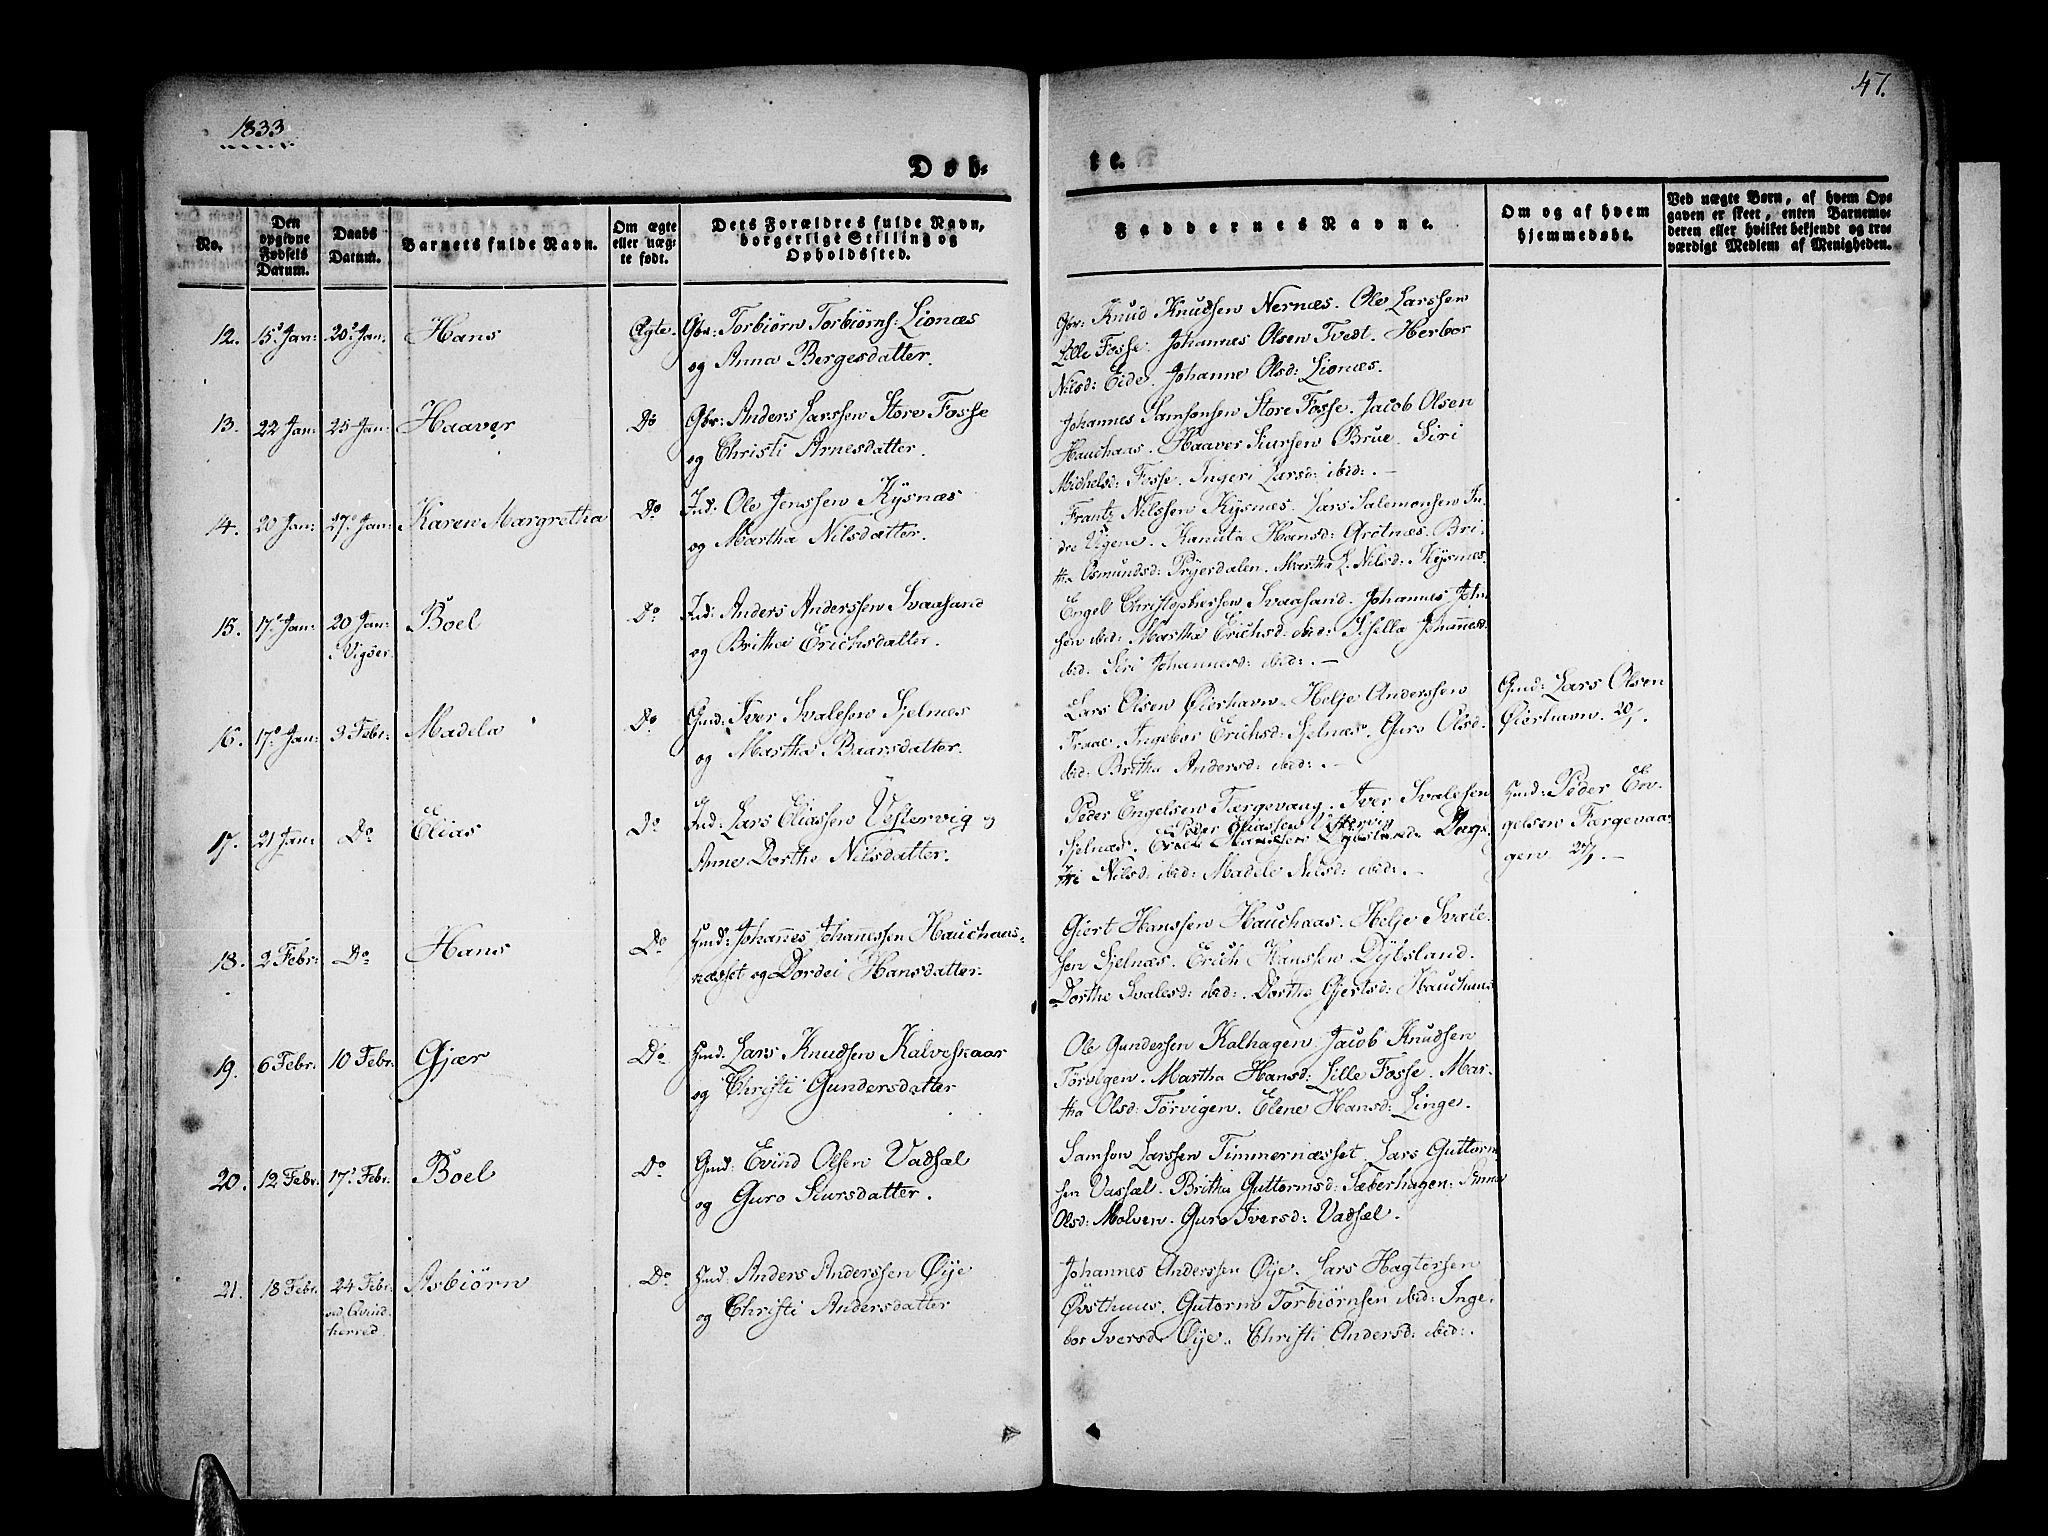 1833
47.
Døb-
te.
No.
Den opgivne Fødsels Datum.
Daabs Datum.
Barnets fulde Navn.
Om ægte eller uægte født.
Dets Forældres fulde Navn, borgerlige Stilling og Opholdssted.
Faddernes Navne.
Om og af hvem hjemmedøbt.
Ved uægte Børn, af hvem Opgaven er skeet, enten Barnemoderen eller hvilket bekjendt og troværdigt Medlem af Menigheden.
12. 15de Jan: 20de Jan. Hans Ægte. Gbr: Torbiørn Torbiørns: Lionæs
og Anna Bergesdatter.
Gbr: Knud Knudsen Nernæs. Ole Larssen
Lille Fosse. Johannes Olsen Tvedt. Herbor
Nilsd: Eide. Johanne Olsd: Lionæs.
13. 22 Jan: 25 Jan: Haaver Do Gbr: Anders Larssen Store Fosse
og Christi Arnesdatter.
Johannes Samsonsen Store Fosse. Jacob Olsen
Hauchaas. Haaver Siursen Brue. Siri
Michelsd: Fosse. Ingeri Larsd: ibid:. –
14. 20 Jan: 27de Jan: Karen Margretha Do Ind: Ole Jenssen Kysnæs
og Martha Nilsdatter.
Frantz Nilssen Kysnæs. Lars Salemonsen In-
dre Vigene. Kanuta Hansd: Grotnæs. Bri-
tha Osmundsd: Prÿerdalen. Martha L. Nilsd: Kysnæs.
15. 17de Jan: 20 Jan: Boel Do Ind: Anders Anderssen Svaasand
i Vigøer
og Britha Erichsdatter.
Engel Christophersen Svaasand. Johannes Joh-
sen ibid: Martha Erichsd: ibid: Johannesd:
ibid: Siri Johannesd: ibid:. –
16. 17de Jan: 3 Febr: Madela Do Gmd: Iver Svalesen Sjelnæs
og Martha Baarsdatter.
Lars Olsen Øierhavn. Helje Anderssen
Traae. Ingebor Erichsd: Sjelnæs. Guro Olsd:
ibid: Britha Andersd: ibid:. –
Gmd: Lars Olsen
Øierhavn. 20/1.
17. 21 Jan: Do Elias Do Ind: Lars Eliassen Vestervig og
Anne Dorthe Nilsdatter.
Peder Engelsen Færgevaag. Iver Svalesen
Peder Eliassen Vistervig
Sjelnæs.
Nilsd: ibid: Madele Nilsd: ibid:. –
Hmd: Peder En-
gelsen Færgevaa-
gen 21/1. –
18. 2 Febr: Do Hans Do Hmd: Johannes Johannessen Hauchaas-
næsset og Dordei Hansdatter.
Giert Hanssen Hauchaas. Helje Svale-
sen Sjelnæs. Erich Hanssen Dÿbsland.
Dorthe Svalesd: ibid:. Dorthe Gjertsd: Hauchaas
19. 6 Febr: 10 Febr: Gjær Do Hmd. Lars Knudsen Kalveskaar
og Christi Gundersdatter
Ole Gundersen Kalhagen. Jacob Knudsen
Torvigen. Martha Hansd: Lille Fosse. Mar-
tha Olsd: Torvigen. Elene Hansd: Linge.
20. 12 Febr: 17de Febr: Boel Do Gmd: Evind Olsen Vadsæl
og Guro Siursdatter.
Samson Larssen Timmernæsset. Lars Guttorm
sen Vassæl. Britha Guttormsd: Sæberhagen: Anna
Olsd: Molven. Guro Iversd: Vadsæl.
21. 18 Febr: 24 Febr: Asbiørn Do Hmd: Anders Anderssen Øije
ved Qvind-
herred.
og Christi Andersdatter
Johannes Anderssen Øije. Lars Hagtorsen
Øvsthuus. Gutorm Torbiørnsen ibid: Inge-
bor Iversd: Øije. Christi Andersd: ibid:.